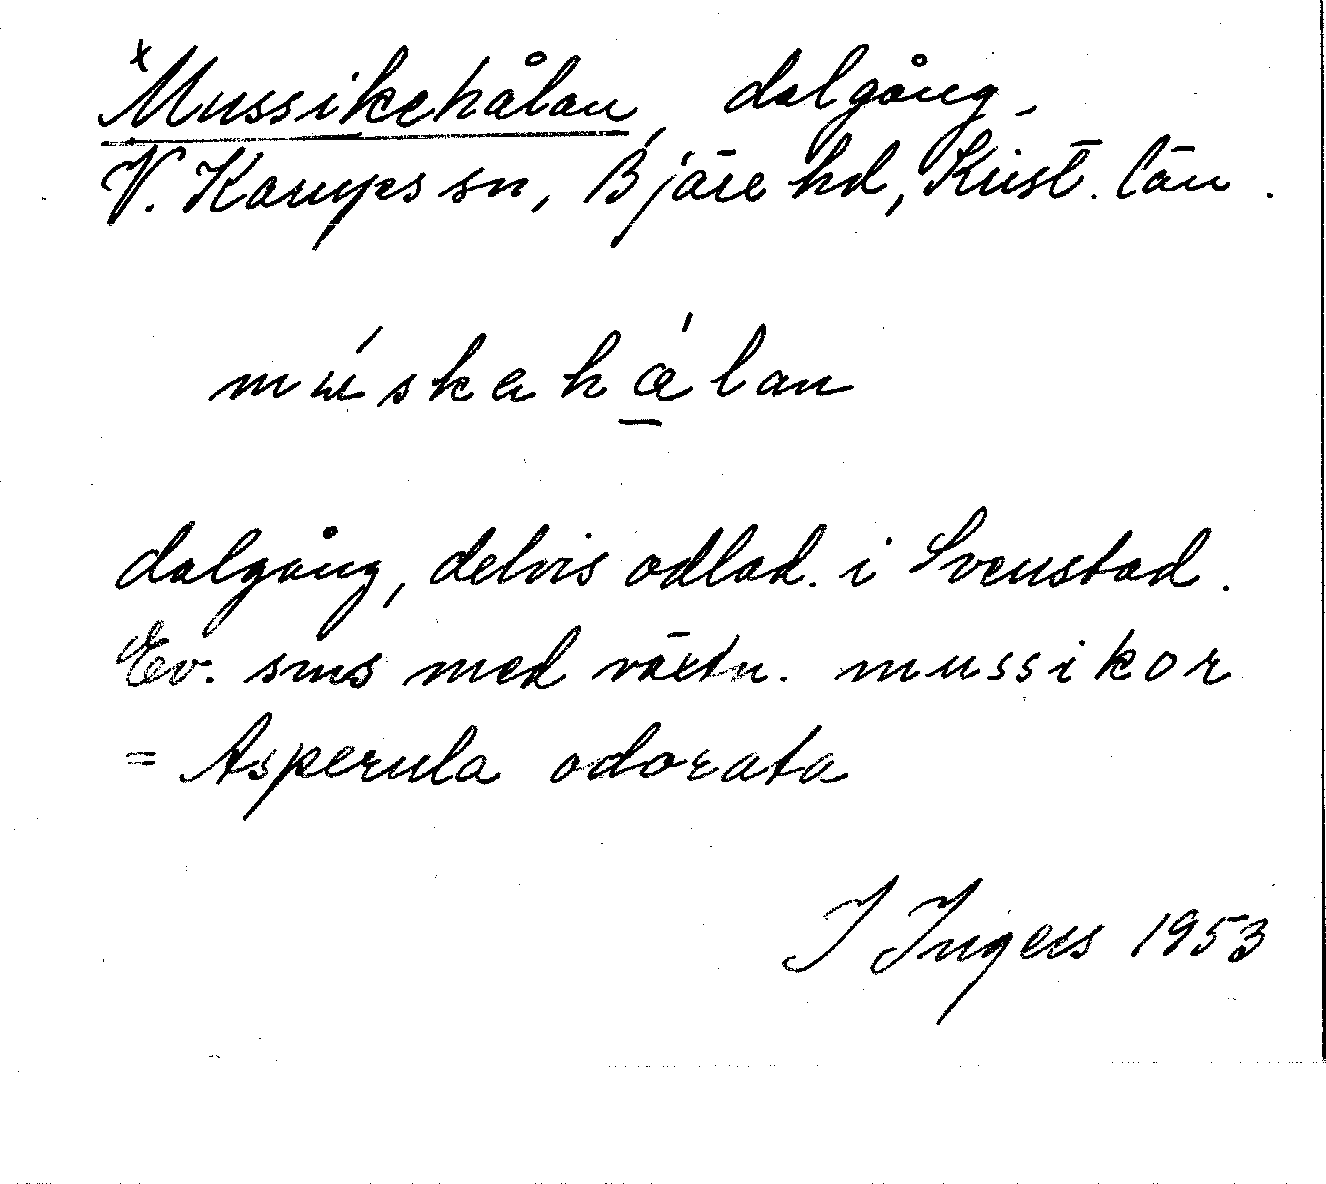 x Mussikehålan, dalgång,
V. Karups sn, Bjäre hd, Krist. län.
múskahálan
dalgång, delvis odlad. i Svenstad.
Ev. sms med växtn. mussikor
= Asperula odorata
I Ingers 1953